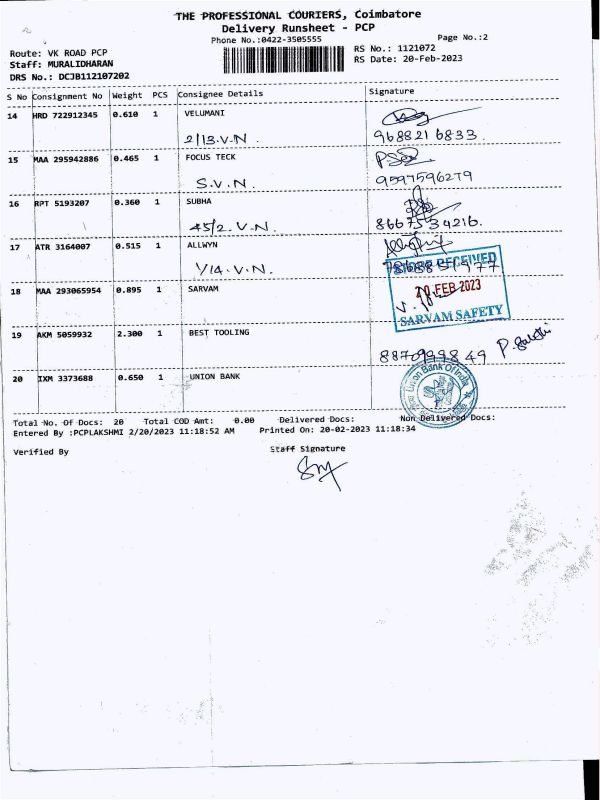 THE PROFESSIONAL COURIERS, Coimbatore
Delivery Runsheet - PCP
Phone No.:0422-3505555
Page No.:2
Route: VK ROAD PCP
RS No.: 1121072
Staff: MURALIDHARAN
RS Date: 20-Feb-2023
DRS No.: DCJB112107202
S No Consignment No Weight PCS Consignee Details Signature
14 HRD 722912345 0.610 1 VELUMANI
2/13.V.N. 9688216833.
15 MAA 295942886 0.465 1 FOCUS TECK
S.V.N. 9597596279
16 RPT 5193207 0.360 1 SUBHA
45/2.V.N. 8667534216.
17 ATR 3164007 0.515 1 ALLWYN
1/14.V.N.
RECEIVED
18 MAA 293065954 0.895 1 SARVAM
20 FEB 2023
SARVAM SAFETY
19 AKM 5059932 2.300 1 BEST TOOLING
8870999849
20 IXM 3373688 0.650 1 UNION BANK
Union Bank Of India
Total No. Of Docs: 20 Total COD Amt: 0.00 Delivered Docs: Non Delivered Docs:
Entered By :PCPLAKSHMI 2/20/2023 11:18:52 AM Printed On: 20-02-2023 11:18:34
Verified By
Staff Signature